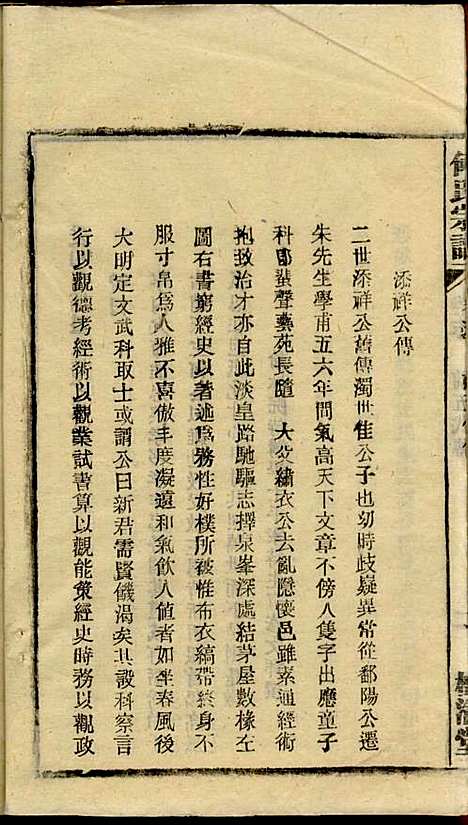 添祥公傳
二世添祥公舊傳濁世佳公子也幼時歧嶷異常從鄱陽公遷
朱先生學甫五六年間氣高天下文章不傍人隻字出應童子
科即蜚聲藝苑長隨　大父繡衣公去亂隱懷邑雖素通經術
抱致治才亦自此淡皇路馳驅志擇泉峯深處結茅屋數椽左
圖右書窮經史以著述爲務性好樸所被惟布衣縞帶終身不
服寸帛爲人雅不喜傲丰度凝遠和氣飲人値者如坐春風後
大明定文武科取士或謂公曰新君需賢饑渴矣其設科察言
行以觀德考經術以觀業試書算以觀能策經史時務以觀政
氏宗譜